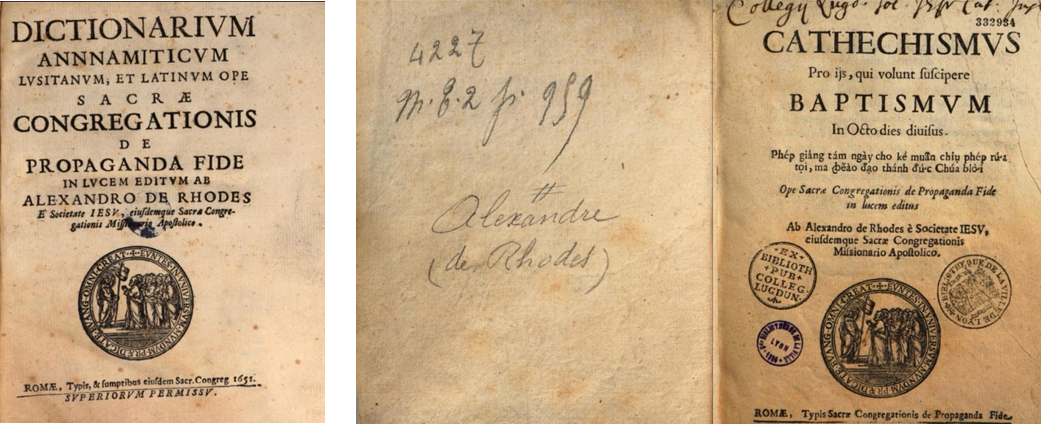 DICTIONARIVM
ANNNAMITICVM
LVSITANVM, ET LATINVM OPE
SACRÆ
CONGREGATIONIS
DE
PROPAGANDA FIDE
IN LVCEM EDITVM AB
ALEXANDRO DE RHODES
E' Societate IESV, eiusdemque Sacræ Congre-
gationis Missionario Apostolico.
ROMÆ, Typis, & sumptibus eiusdem Sacr. Congreg. 1651.
SVPERIORVM PERMISSV.
4227
959
Alexandre
(de Rhodes)
332934
CATHECHISMVS
Pro ijs, qui volunt suscipere
BAPTISMVM
In Octo dies diuisus.
Phép giảng tám ngày cho kẻ muấn chịu phép rứa
tọi, ma ꞗẽào đạo thánh đức Chúa blời
Ope Sacræ Congregationis de Propaganda Fide
in lucem editus
Ab Alexandro de Rhodes è Societate IESV,
eiusdemque Sacræ Congregationis
Missionario Apostolico.
EX
BIBLIOTH
PUB
COLLEG
LUGDUN.
BIBLIOTHEQUE DE LA VILLE DE LYON
LYON
ROMÆ, Typis Sacræ Congregationis de Propaganda Fide